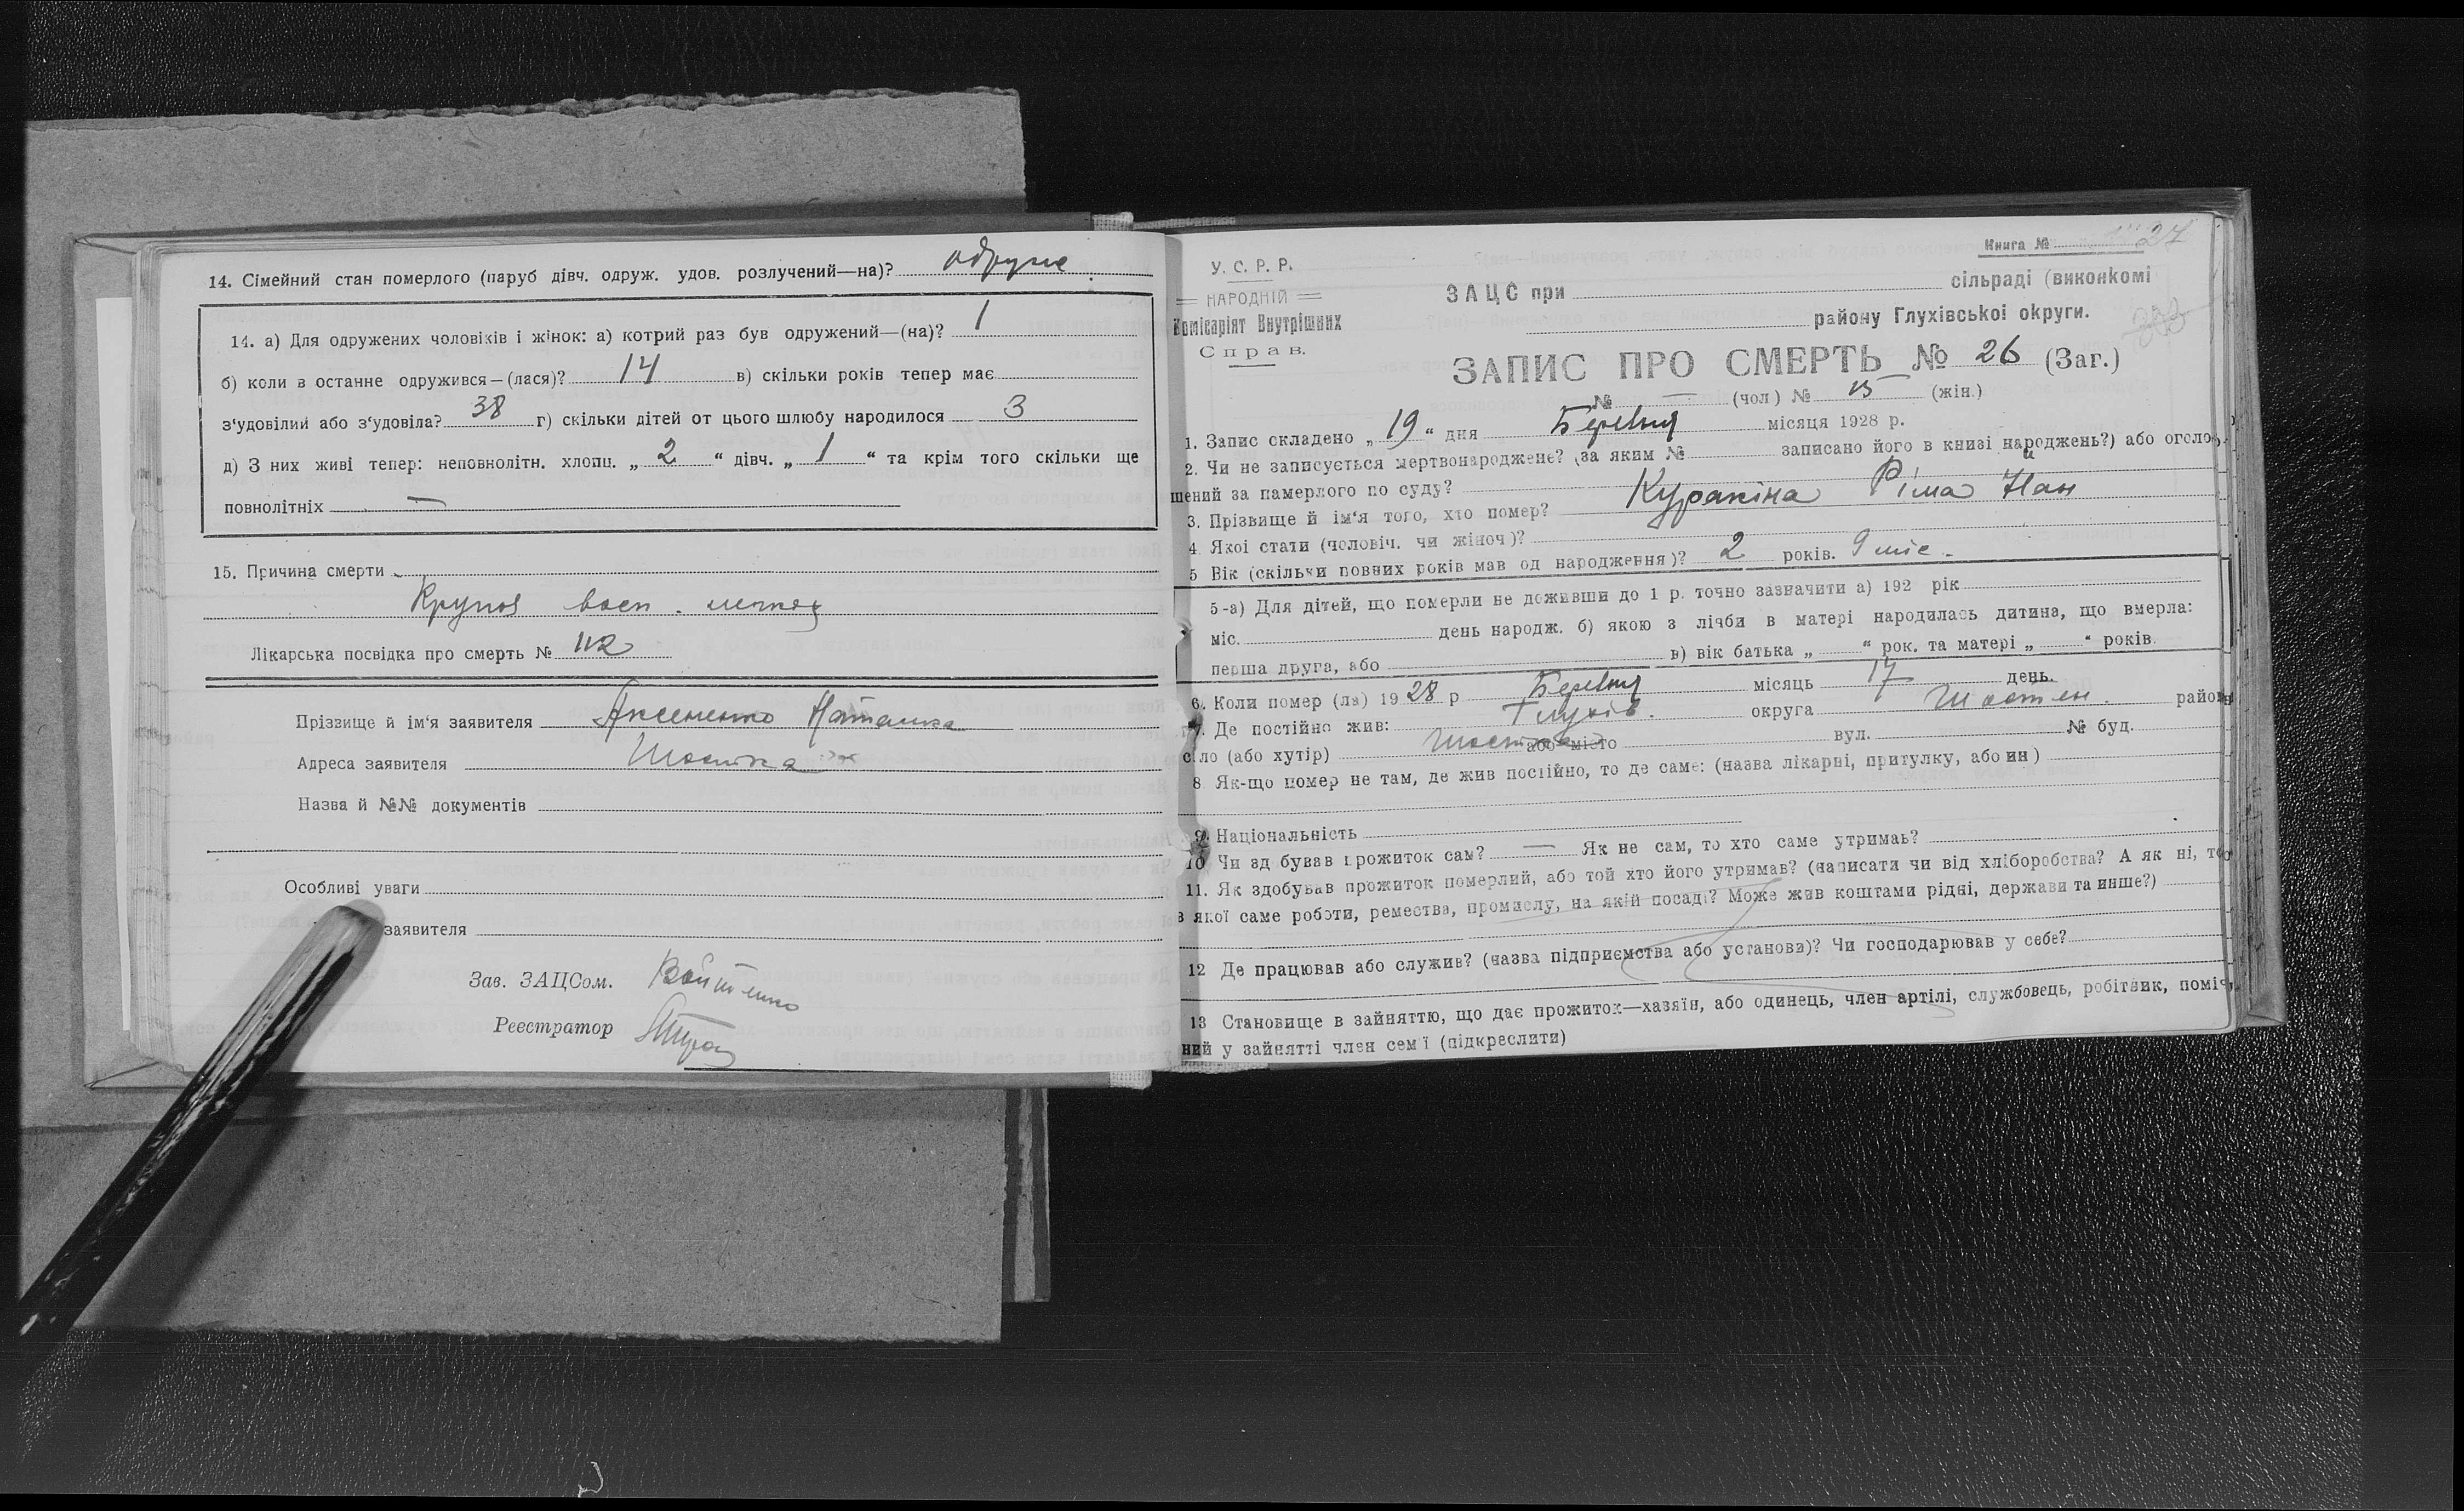 14. Сімейний стан померлого (паруб дівч. одруж. удов. розлучений—на)? одруже
14. а) Для одружених чоловіків і жінок: а) котрий раз був одружений—(на)? 1
б) коли в останне одружився—(лася)? 14 в) скільки років тепер має
з'удовілий або з'удовіла? 38 г) скільки дітей от цього шлюбу народилося 3
д) З них живі тепер: неповнолітн. хлопц. „ 2 “ дівч. „ 1 “ та крім того скільки ще
повнолітніх —
15. Причина смерти
Крупоз восп. легких
Лікарська посвідка про смерть № 112
Прізвище й ім'я заявителя Аксененко Наталка
Адреса заявителя Шостка
Назва й №№ документів
Особливі уваги
заявителя
Зав. ЗАЦСом. Войтенко
Реестратор
Книга № 27
У. С. Р. Р.
НАРОДНІЙ
Комісаріят Внутрішних
Справ.
ЗАЦС при сільраді (виконкомі
району Глухівської округи.
ЗАПИС ПРО СМЕРТЬ № 26 (Заг.)
№ — (чол) № 15 (жін.)
1. Запис складено „ 19 “ дня Березня місяця 1928 р.
2. Чи не записується мертвонароджене? (за яким № записано його в книзі народжень?) або оголо
шений за памерлого по суду?
3. Прізвище й ім'я того, хто помер? Куракіна Ріма
4. Якої стати (чоловіч. чи жіноч)?
5 Вік (скільки повних років мав од народження)? 2 років. 9 міс.
5-а) Для дітей, що померли не доживши до 1 р. точно зазначити а) 192 рік
міс. день народж. б) якою з лічби в матері народилась дитина, що вмерла:
перша друга, або в) вік батька „ “ рок. та матері „ “ років.
6. Коли помер (ла) 19 28 р Березня місяць 17 день.
7. Де постійно жив: Глухів. округа Шостен. район
село (або хутір) Шостка або місто вул. № буд.
8. Як-що помер не там, де жив постійно, то де саме: (назва лікарні, притулку, або ин)
9. Національність
10. Чи зд бував прожиток сам? — Як не сам, то хто саме утримав?
11. Як здобував прожиток померлий, або той хто його утримав? (написати чи від хліборобства? А як ні, то
з якої саме роботи, ремества, промислу, на якій посаді? Може жив коштами рідні, держави та инше?)
12 Де працював або служив? (назва підприємства або установи)? Чи господарював у себе?
13 Становище в зайняттю, що дає прожиток—хазяїн, або одинець, член артілі, службовець, робітник, поміч
ний у зайнятті член сем'ї (підкреслити)